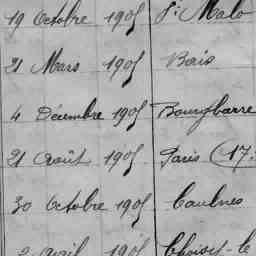 19 Octobre 1905 St Malo
21 Mars 1905 Bais
4 Décembre 1905 Bourgbarré
21 Août 1905 Paris (17:
30 Octobre 1905 Caulnes
2 Avril 1905 Choisy-le